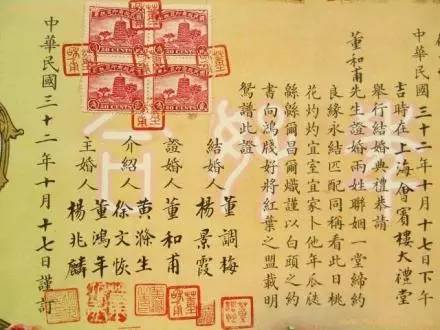 中華民國三十二年十月十七日下午
吉時在上海會賓樓大禮堂
舉行結婚典禮恭請
董和甫先生證婚兩姓聯姻一堂締約
良緣永結匹配同稱看此日桃
花灼灼宜室宜家卜他年瓜瓞
緜緜爾昌爾熾謹以白頭之約
書向鴻牋好將紅葉之盟載明
鴛譜此證
結婚人 董調梅
楊景霞
證婚人 董和甫
介紹人 黃滌生
徐文恢
主婚人 董鴻年
楊兆麟
中華民國三十二年十月十七日謹訂
20 CENTS
20 CENTS